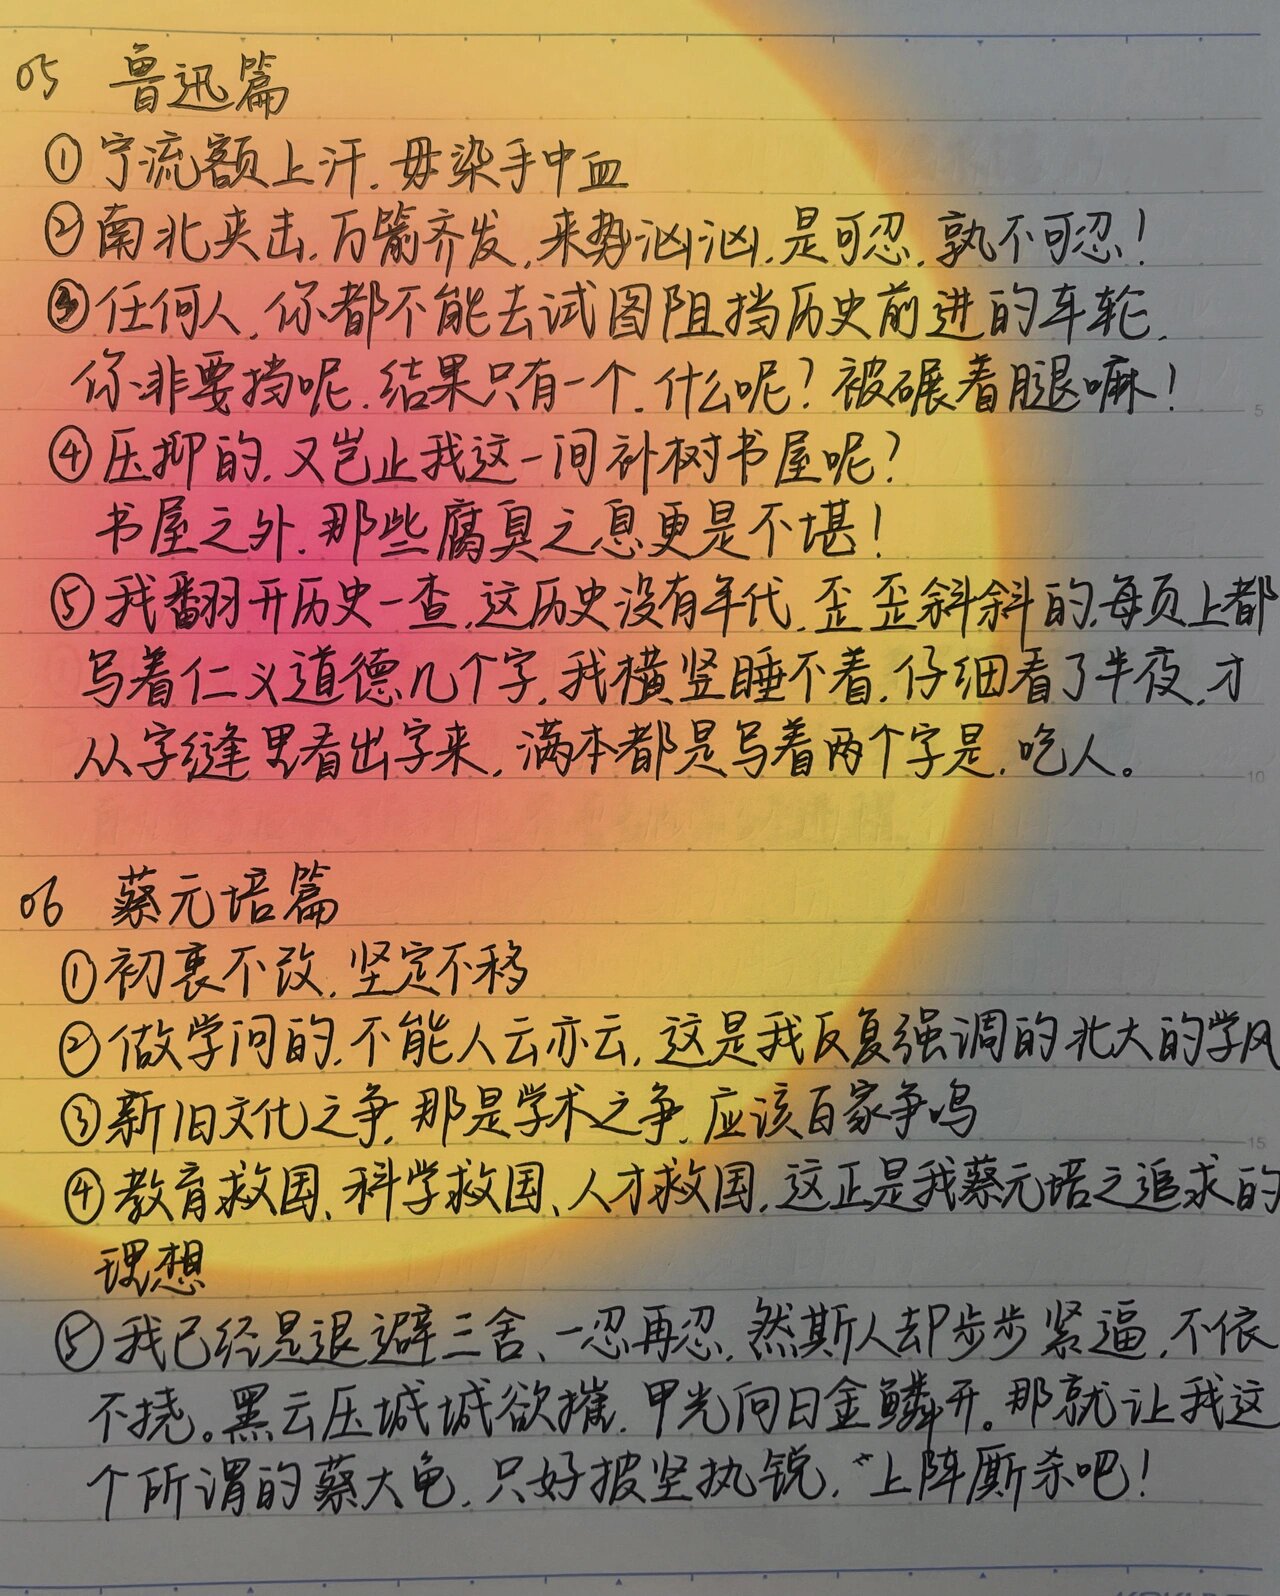 05 鲁迅篇
①宁流额上汗.毋染手中血
②南北夹击.万箭齐发,来势汹汹.是可忍.孰不可忍!
③任何人.你都不能去试图阻挡历史前进的车轮.
你非要挡呢.结果只有一个.什么呢?被碾着腿嘛!
④压抑的.又岂止我这一间补树书屋呢?
书屋之外.那些腐臭之息更是不堪!
⑤我翻开历史一查.这历史没有年代.歪歪斜斜的.每页上都
写着仁义道德几个字.我横竖睡不着.仔细看了半夜.才
从字缝里看出字来,满本都是写着两个字是.吃人。
06 蔡元培篇
①初衷不改.坚定不移
②做学问的.不能人云亦云.这是我反复强调的北大的学风
③新旧文化之争.那是学术之争.应该百家争鸣
④教育救国、科学救国、人才救国.这正是我蔡元培之追求的
理想
⑤我已经是退避三舍、一忍再忍.然斯人却步步紧逼.不依
不挠。黑云压城城欲摧.甲光向日金鳞开。那就让我这
个所谓的蔡大龟.只好披坚执锐,上阵厮杀吧!